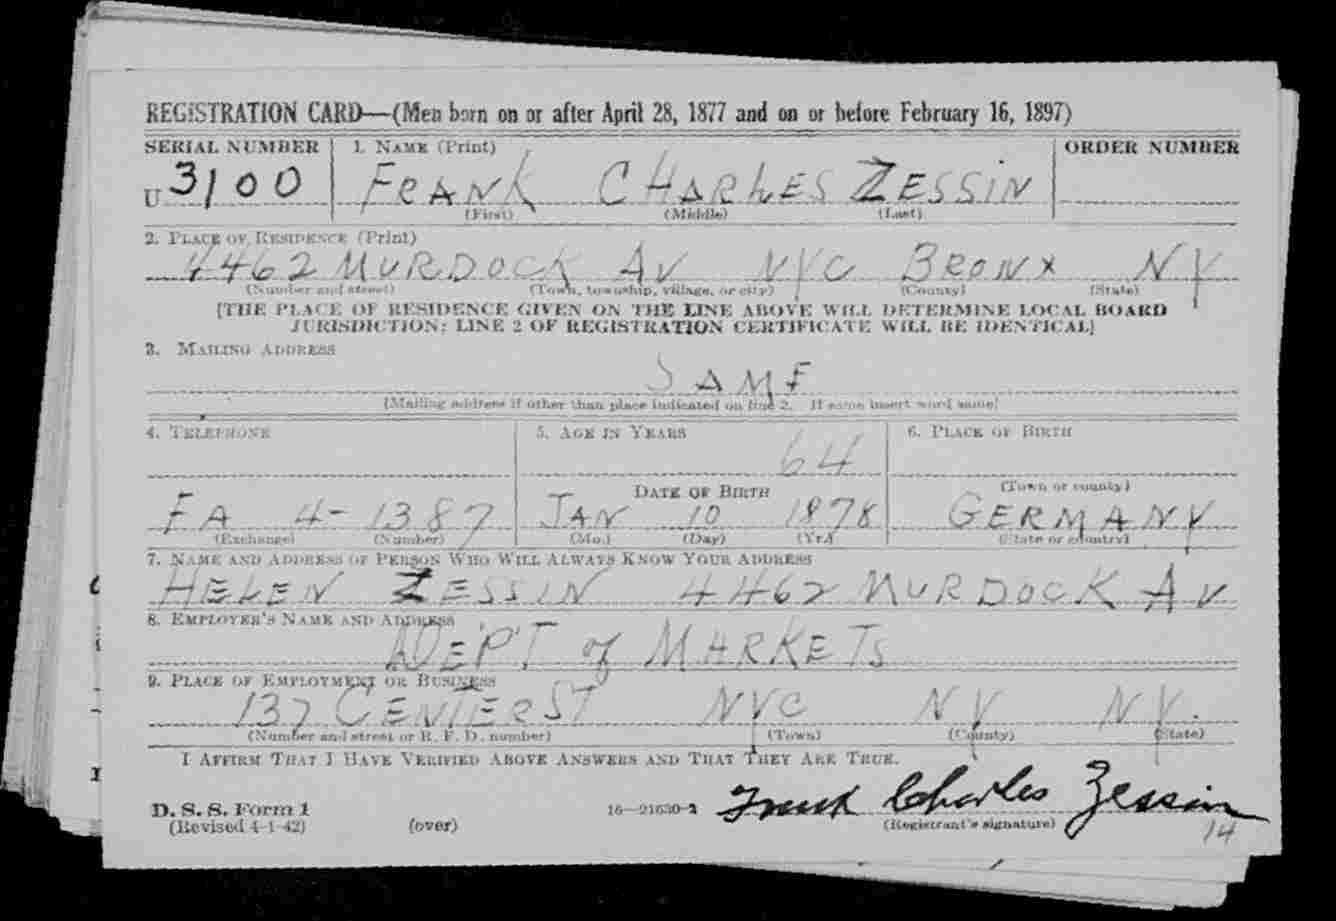 REGISTRATION CARD—(Men born on or after April 28, 1877 and on or before February 16, 1897)
SERIAL NUMBER 1. NAME (Print) ORDER NUMBER
U 3100 FRANK CHARLES ZESSIN
(First) (Middle) (Last)
2. PLACE OF RESIDENCE (Print)
4462 MURDOCK AV NYC BRONX NY
(Number and street) (Town, township, village, or city) (County) (State)
[THE PLACE OF RESIDENCE GIVEN ON THE LINE ABOVE WILL DETERMINE LOCAL BOARD
JURISDICTION; LINE 2 OF REGISTRATION CERTIFICATE WILL BE IDENTICAL]
3. MAILING ADDRESS
SAME
[Mailing address if other than place indicated on line 2. If same insert word same]
4. TELEPHONE 5. AGE IN YEARS 6. PLACE OF BIRTH
64
DATE OF BIRTH (Town or county)
FA 4-1387 JAN 10 1878 GERMANY
(Exchange) (Number) (Mo.) (Day) (Yr.) (State or country)
7. NAME AND ADDRESS OF PERSON WHO WILL ALWAYS KNOW YOUR ADDRESS
HELEN ZESSIN 4462 MURDOCK AV
8. EMPLOYER'S NAME AND ADDRESS
DEP'T of MARKETS
9. PLACE OF EMPLOYMENT OR BUSINESS
137 CENTER ST NYC NY NY.
(Number and street or R. F. D. number) (Town) (County) (State)
I AFFIRM THAT I HAVE VERIFIED ABOVE ANSWERS AND THAT THEY ARE TRUE.
D. S. S. Form 1 16—21630-2 Frank Charles Zessin
(Revised 4-1-42) (over) (Registrant's signature) 14